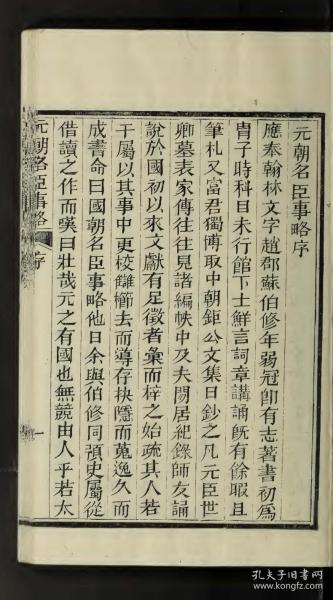 元朝名臣事略序
應奉翰林文字趙郡蘇伯修年弱冠卽有志著書初爲
胄子時科目未行館下士鮮言詞章講誦旣有餘暇且
筆札又富君獨博取中朝鉅公文集日鈔之凡元臣世
卿墓表家傳往往見諸編帙中及夫閒居紀錄師友誦
說於國初以來文獻有足徵者彙而梓之始疏其人若
干屬以其事中更校讎櫛去而導存抉隱而蒐逸久而
成書命曰國朝名臣事略他日余與伯修同預史屬從
借讀之作而嘆曰壯哉元之有國也無競由人乎若太
元朝名臣事略
序
一
孔夫子旧书网